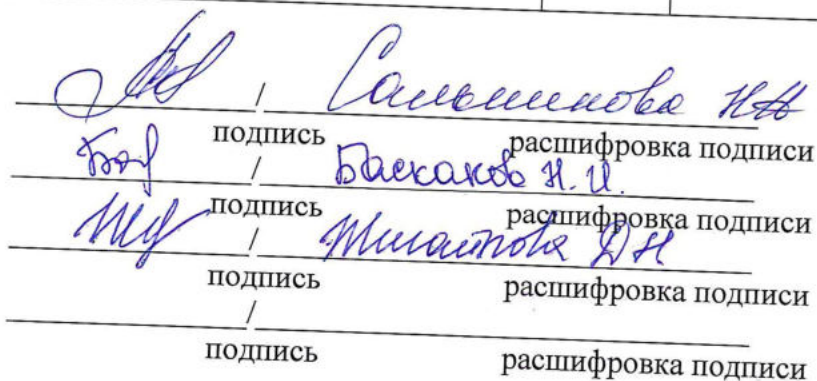 / Сальникова НН
подпись расшифровка подписи
/ Баскакова Н.И.
подпись расшифровка подписи
/ ДН
подпись расшифровка подписи
/
подпись расшифровка подписи